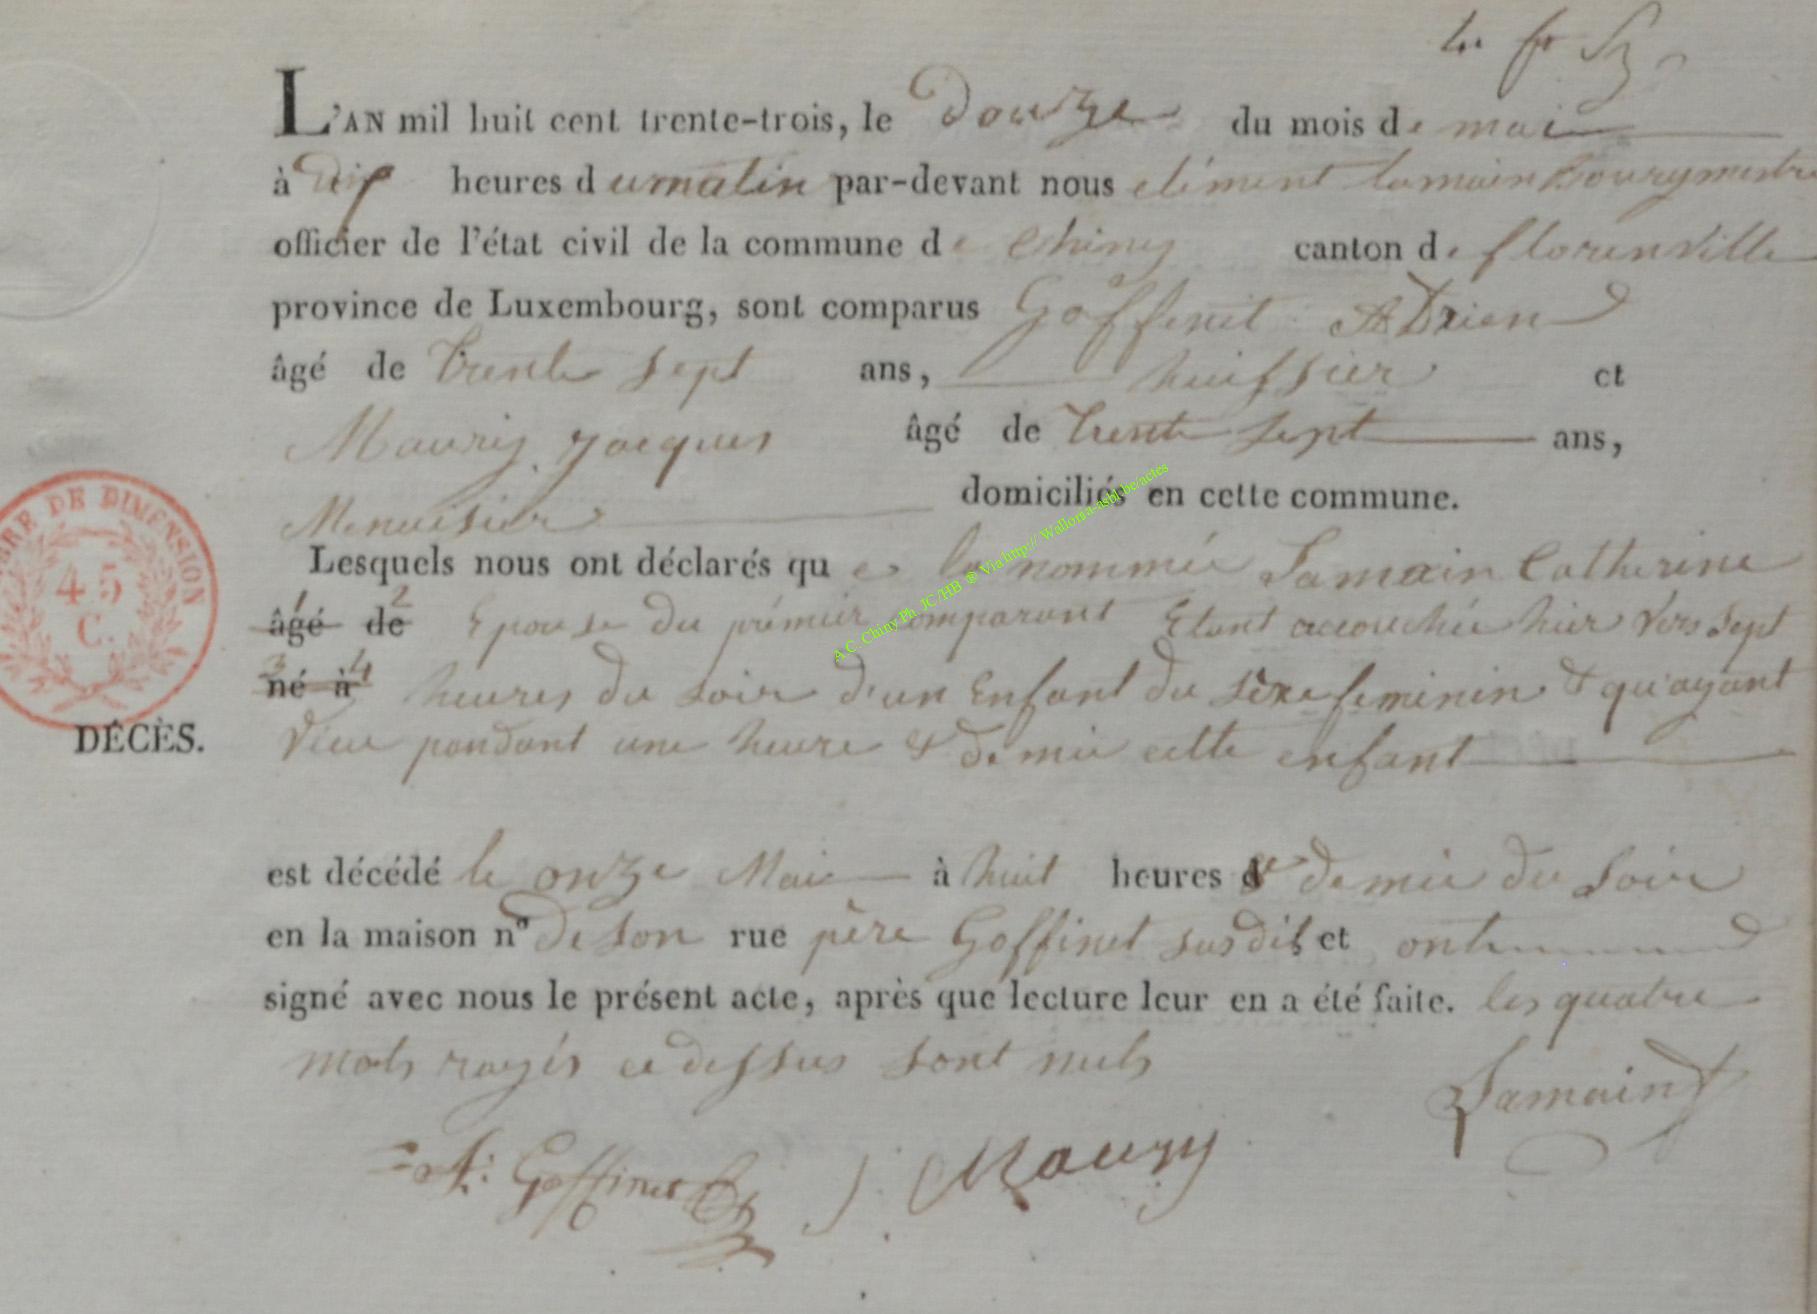 L'AN mil huit cent trente-trois, le Douze du mois de mai
à dix heures du matin par-devant nous clément Lamain Bourgmestre
officier de l'état civil de la commune de Chiny canton de florenville
province de Luxembourg, sont comparus Goffinet Adrien
âgé de trente sept ans, huissier et
Maury Jacques âgé de trente sept ans,
Menuisier domiciliés en cette commune.
Lesquels nous ont déclarés que la nommée Lamain Catherine
âgé 1 de 2 Epouse du prémier comparant Etant accouchée hier vers sept
né 3 à 4 heures du soir d'un Enfant du sèxe feminin & qu'ayant
DÉCÈS. vécu pendant une heure & demie cette enfant
est décédé le onze Mai à huit heures & demie du Soir
en la maison n° de son rue père Goffinet susdit et ont
signé avec nous le présent acte, après que lecture leur en a été faite. les quatre
mots rayés ci dessus sont nuls
Lamain
A: Goffinet J. Maury
TIMBRE DE DIMENSION
45
C.
A.C. Chiny Ph. JC/HB ® Via http:// Wallonia-asbl.be/actes